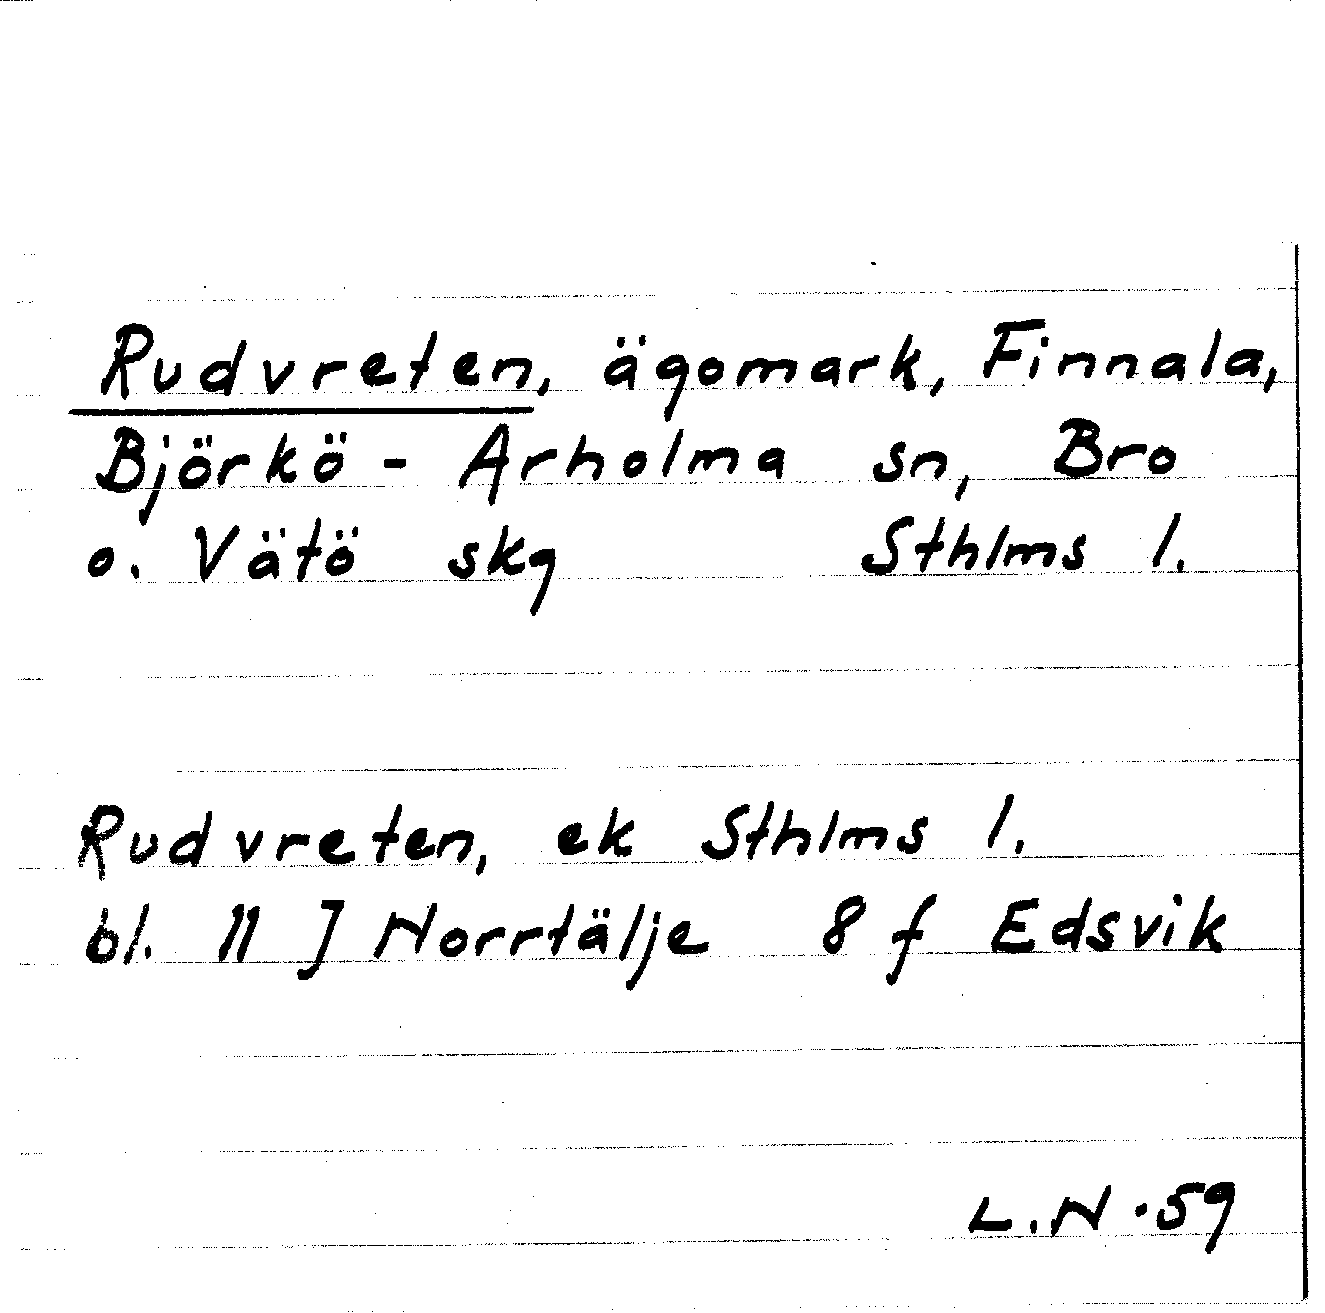 Rudvreten, ägomark, Finnala,
Björkö - Arholma sn, Bro
o. Vätö skg Sthlms l.
Rudvreten, ek Sthlms l.
bl. 11 J Norrtälje 8 f Edsvik
L.N -59